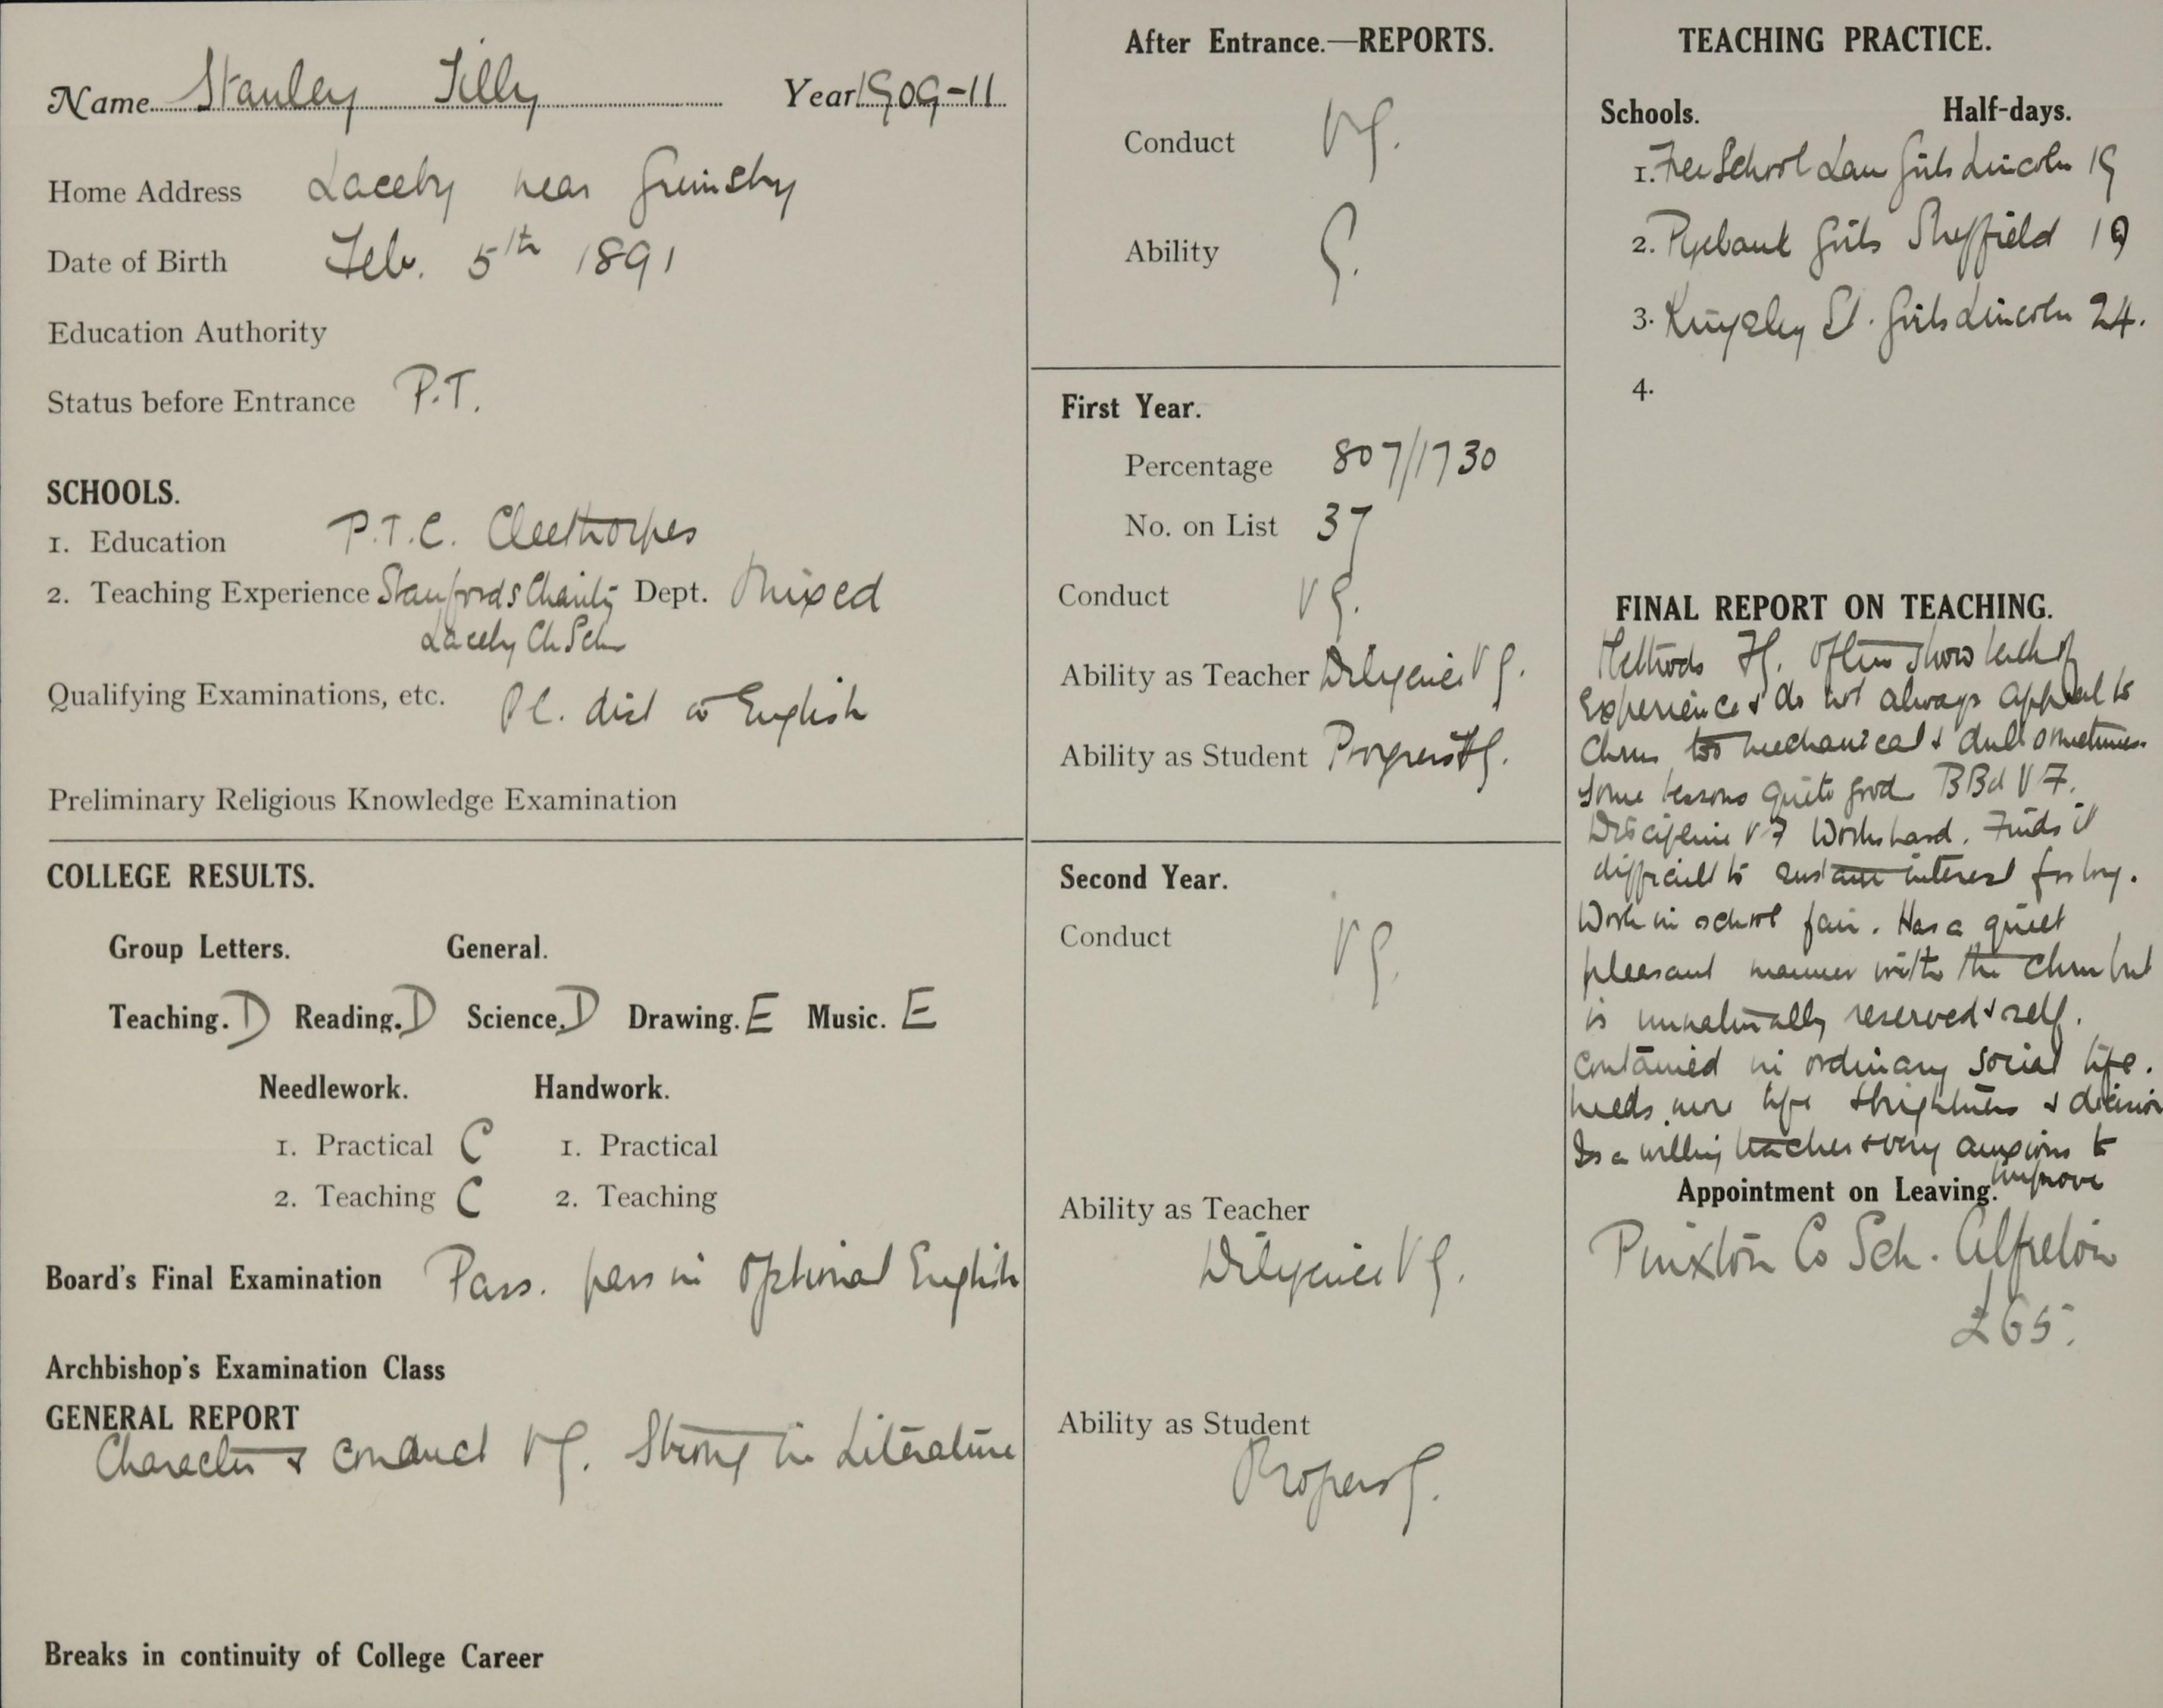 Name Stanley Tilly Year 1909-11
Home Address Laceby near Grimsby
Date of Birth Feb. 5th 1891
Education Authority
Status before Entrance P.T.
SCHOOLS.
1. Education P.T.C. Cleethorpes
2. Teaching Experience Stanfords Charity Dept. Mixed
Laceby Ch Sch
Qualifying Examinations, etc. P.C. dist in English
Preliminary Religious Knowledge Examination
COLLEGE RESULTS.
Group Letters. General.
Teaching. D Reading. D Science. D Drawing. E Music. E
Needlework. Handwork.
1. Practical C 1. Practical
2. Teaching C 2. Teaching
Board's Final Examination Pass. pass in Optional English
Archbishop's Examination Class
GENERAL REPORT
Character & conduct VG. Strong in Literature
Breaks in continuity of College Career
After Entrance.—REPORTS.
Conduct VG.
Ability G.
First Year.
Percentage 807/1730
No. on List 37
Conduct VG.
Ability as Teacher Diligence VG.
Ability as Student Progress FG.
Second Year.
Conduct VG.
Ability as Teacher
Diligence VG.
Ability as Student
Progress G.
TEACHING PRACTICE.
Schools. Half-days.
1. Free School Lane Girls Lincoln 19
2. Pyebank Girls Sheffield 19
3. Kingsley St. Girls Lincoln 24.
4.
FINAL REPORT ON TEACHING.
Methods FG. Often show lack of
experience & do not always appeal to
Chrn too mechanical & dull sometimes.
Some lessons quite good BBd VF.
Discipline VF Works hard. Finds it
difficult to sustain interest for long.
Work in school fair. Has a quiet
pleasant manner with the Chrn but
is unnaturally reserved & self.
contained in ordinary social life.
Needs more life & brightness & decision
Is a willing teacher & very anxious to
improve
Appointment on Leaving.
Pinxton Co Sch. Alfreton
£65.